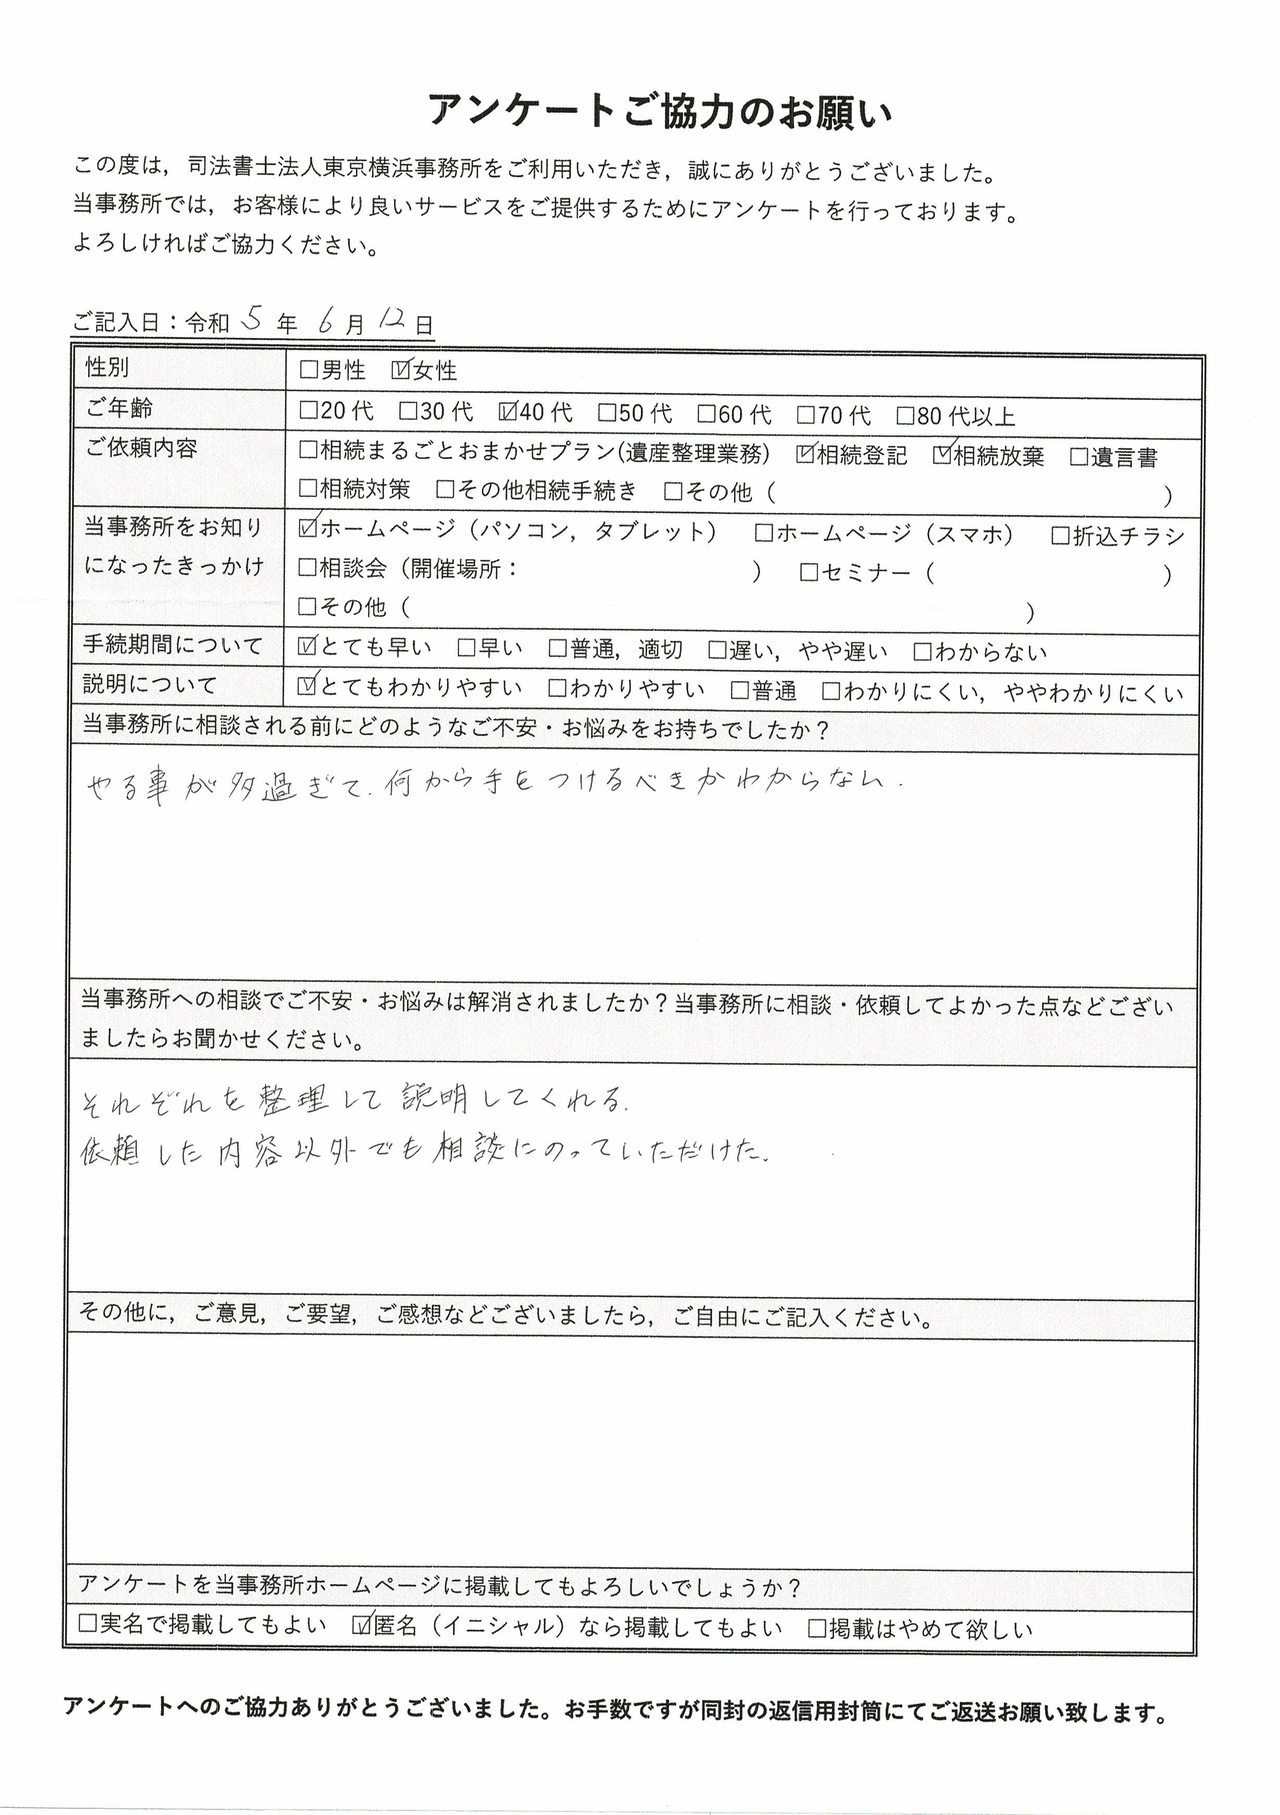 アンケートご協力のお願い
この度は，司法書士法人東京横浜事務所をご利用いただき，誠にありがとうございました。
当事務所では，お客様により良いサービスをご提供するためにアンケートを行っております。
よろしければご協力ください。
ご記入日：令和 5 年 6 月 12 日
性別 □男性 ☑女性
ご年齢 □20代 □30代 ☑40代 □50代 □60代 □70代 □80代以上
ご依頼内容 □相続まるごとおまかせプラン(遺産整理業務) ☑相続登記 ☑相続放棄 □遺言書
□相続対策 □その他相続手続き □その他（ ）
当事務所をお知り ☑ホームページ（パソコン，タブレット） □ホームページ（スマホ） □折込チラシ
になったきっかけ □相談会（開催場所： ） □セミナー（ ）
□その他（ ）
手続期間について ☑とても早い □早い □普通，適切 □遅い，やや遅い □わからない
説明について ☑とてもわかりやすい □わかりやすい □普通 □わかりにくい，ややわかりにくい
当事務所に相談される前にどのようなご不安・お悩みをお持ちでしたか？
やる事が多過ぎて、何から手をつけるべきかわからない。
当事務所への相談でご不安・お悩みは解消されましたか？当事務所に相談・依頼してよかった点などござい
ましたらお聞かせください。
それぞれを整理して説明してくれる。
依頼した内容以外でも相談にのっていただけた。
その他に，ご意見，ご要望，ご感想などございましたら，ご自由にご記入ください。
アンケートを当事務所ホームページに掲載してもよろしいでしょうか？
□実名で掲載してもよい ☑匿名（イニシャル）なら掲載してもよい □掲載はやめて欲しい
アンケートへのご協力ありがとうございました。お手数ですが同封の返信用封筒にてご返送お願い致します。